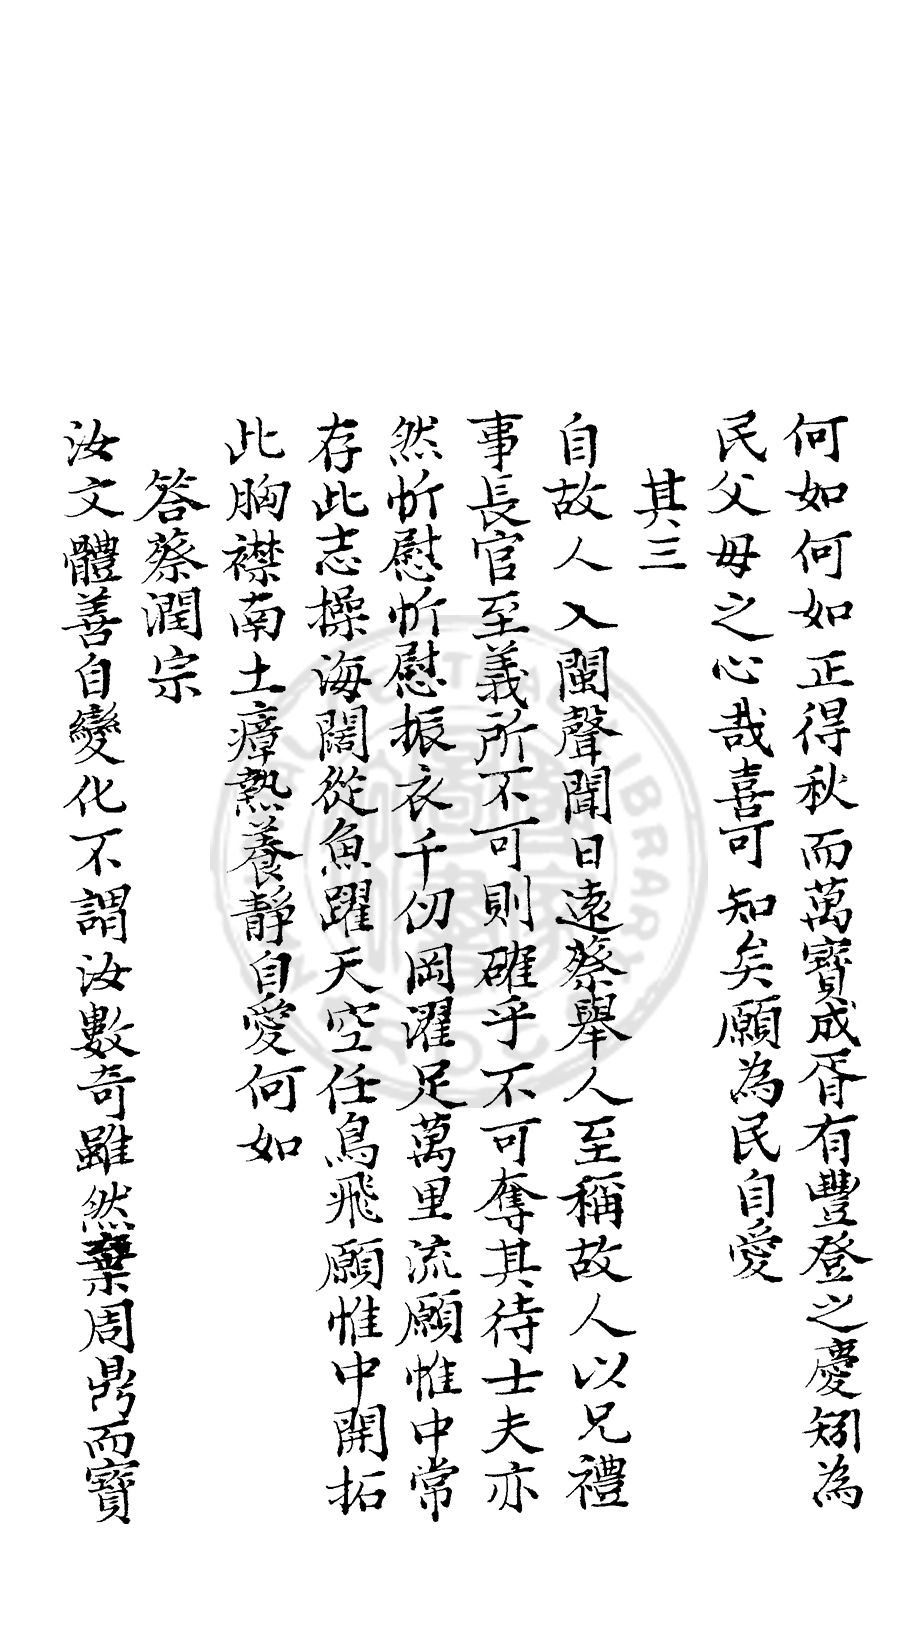 何如何如正得秋而萬寶成胥有豐登之慶矧為
民父母之心哉喜可知矣願為民自愛
其三
自故人入閩聲聞日遠蔡舉人至稱故人以兄禮
事長官至義所不可則確乎不可奪其待士夫亦
然忻慰忻慰振衣千仞岡濯足萬里流願惟中常
存此志操海闊從魚躍天空任鳥飛願惟中開拓
此胸襟南土瘴熱養靜自愛何如
答蔡潤宗
汝文體善自變化不謂汝數奇雖然棄周鼎而寶